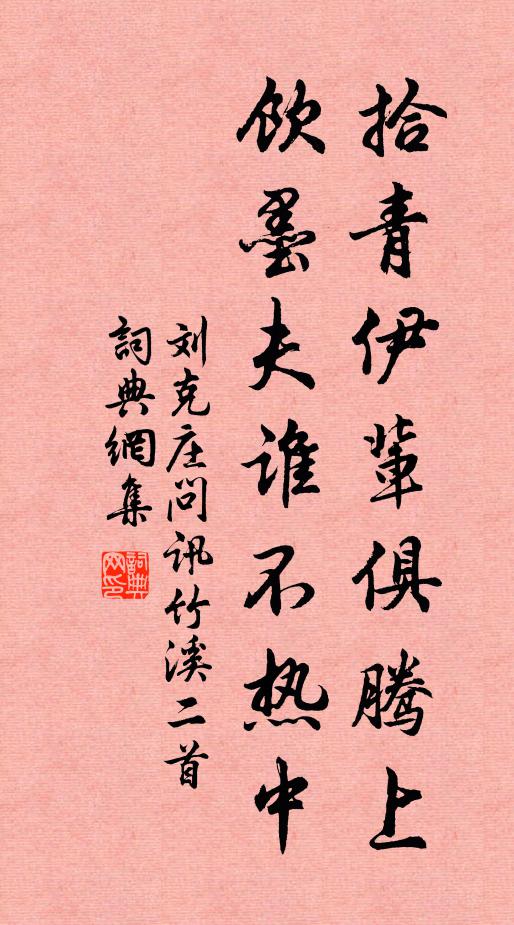 拾青伊輩俱騰上
飲墨夫谁不热中
刘克庄问讯竹溪二首
詞典網集
詞典網印